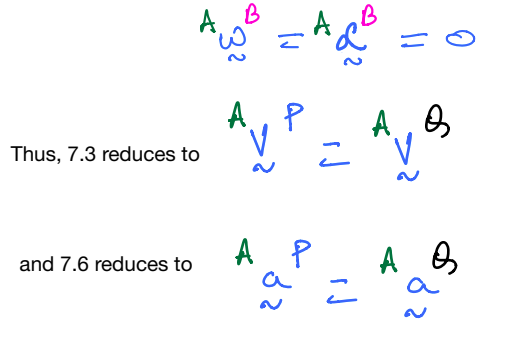 A ω B = A α B = 0
Thus, 7.3 reduces to A V P = A V Q
and 7.6 reduces to A a P = A a Q